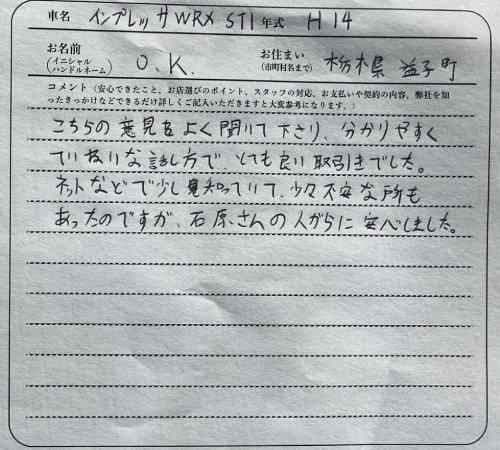 車名 インプレッサWRX STI 年式 H14
お名前 (イニシャル ハンドルネーム) O.K. お住まい (市町村名まで) 栃木県 益子町
コメント(安心できたこと、お店選びのポイント、スタッフの対応、お支払いや契約の内容、弊社を知
ったきっかけなどできるだけ詳しくご記入いただきますと大変参考になります。)
こちらの意見をよく聞いて下さり、分かりやすく
ていねいな話し方で、とても良い取引きでした。
ネットなどで少し見知っていて、少々不安な所も
あったのですが、石原さんの人がらに安心しました。